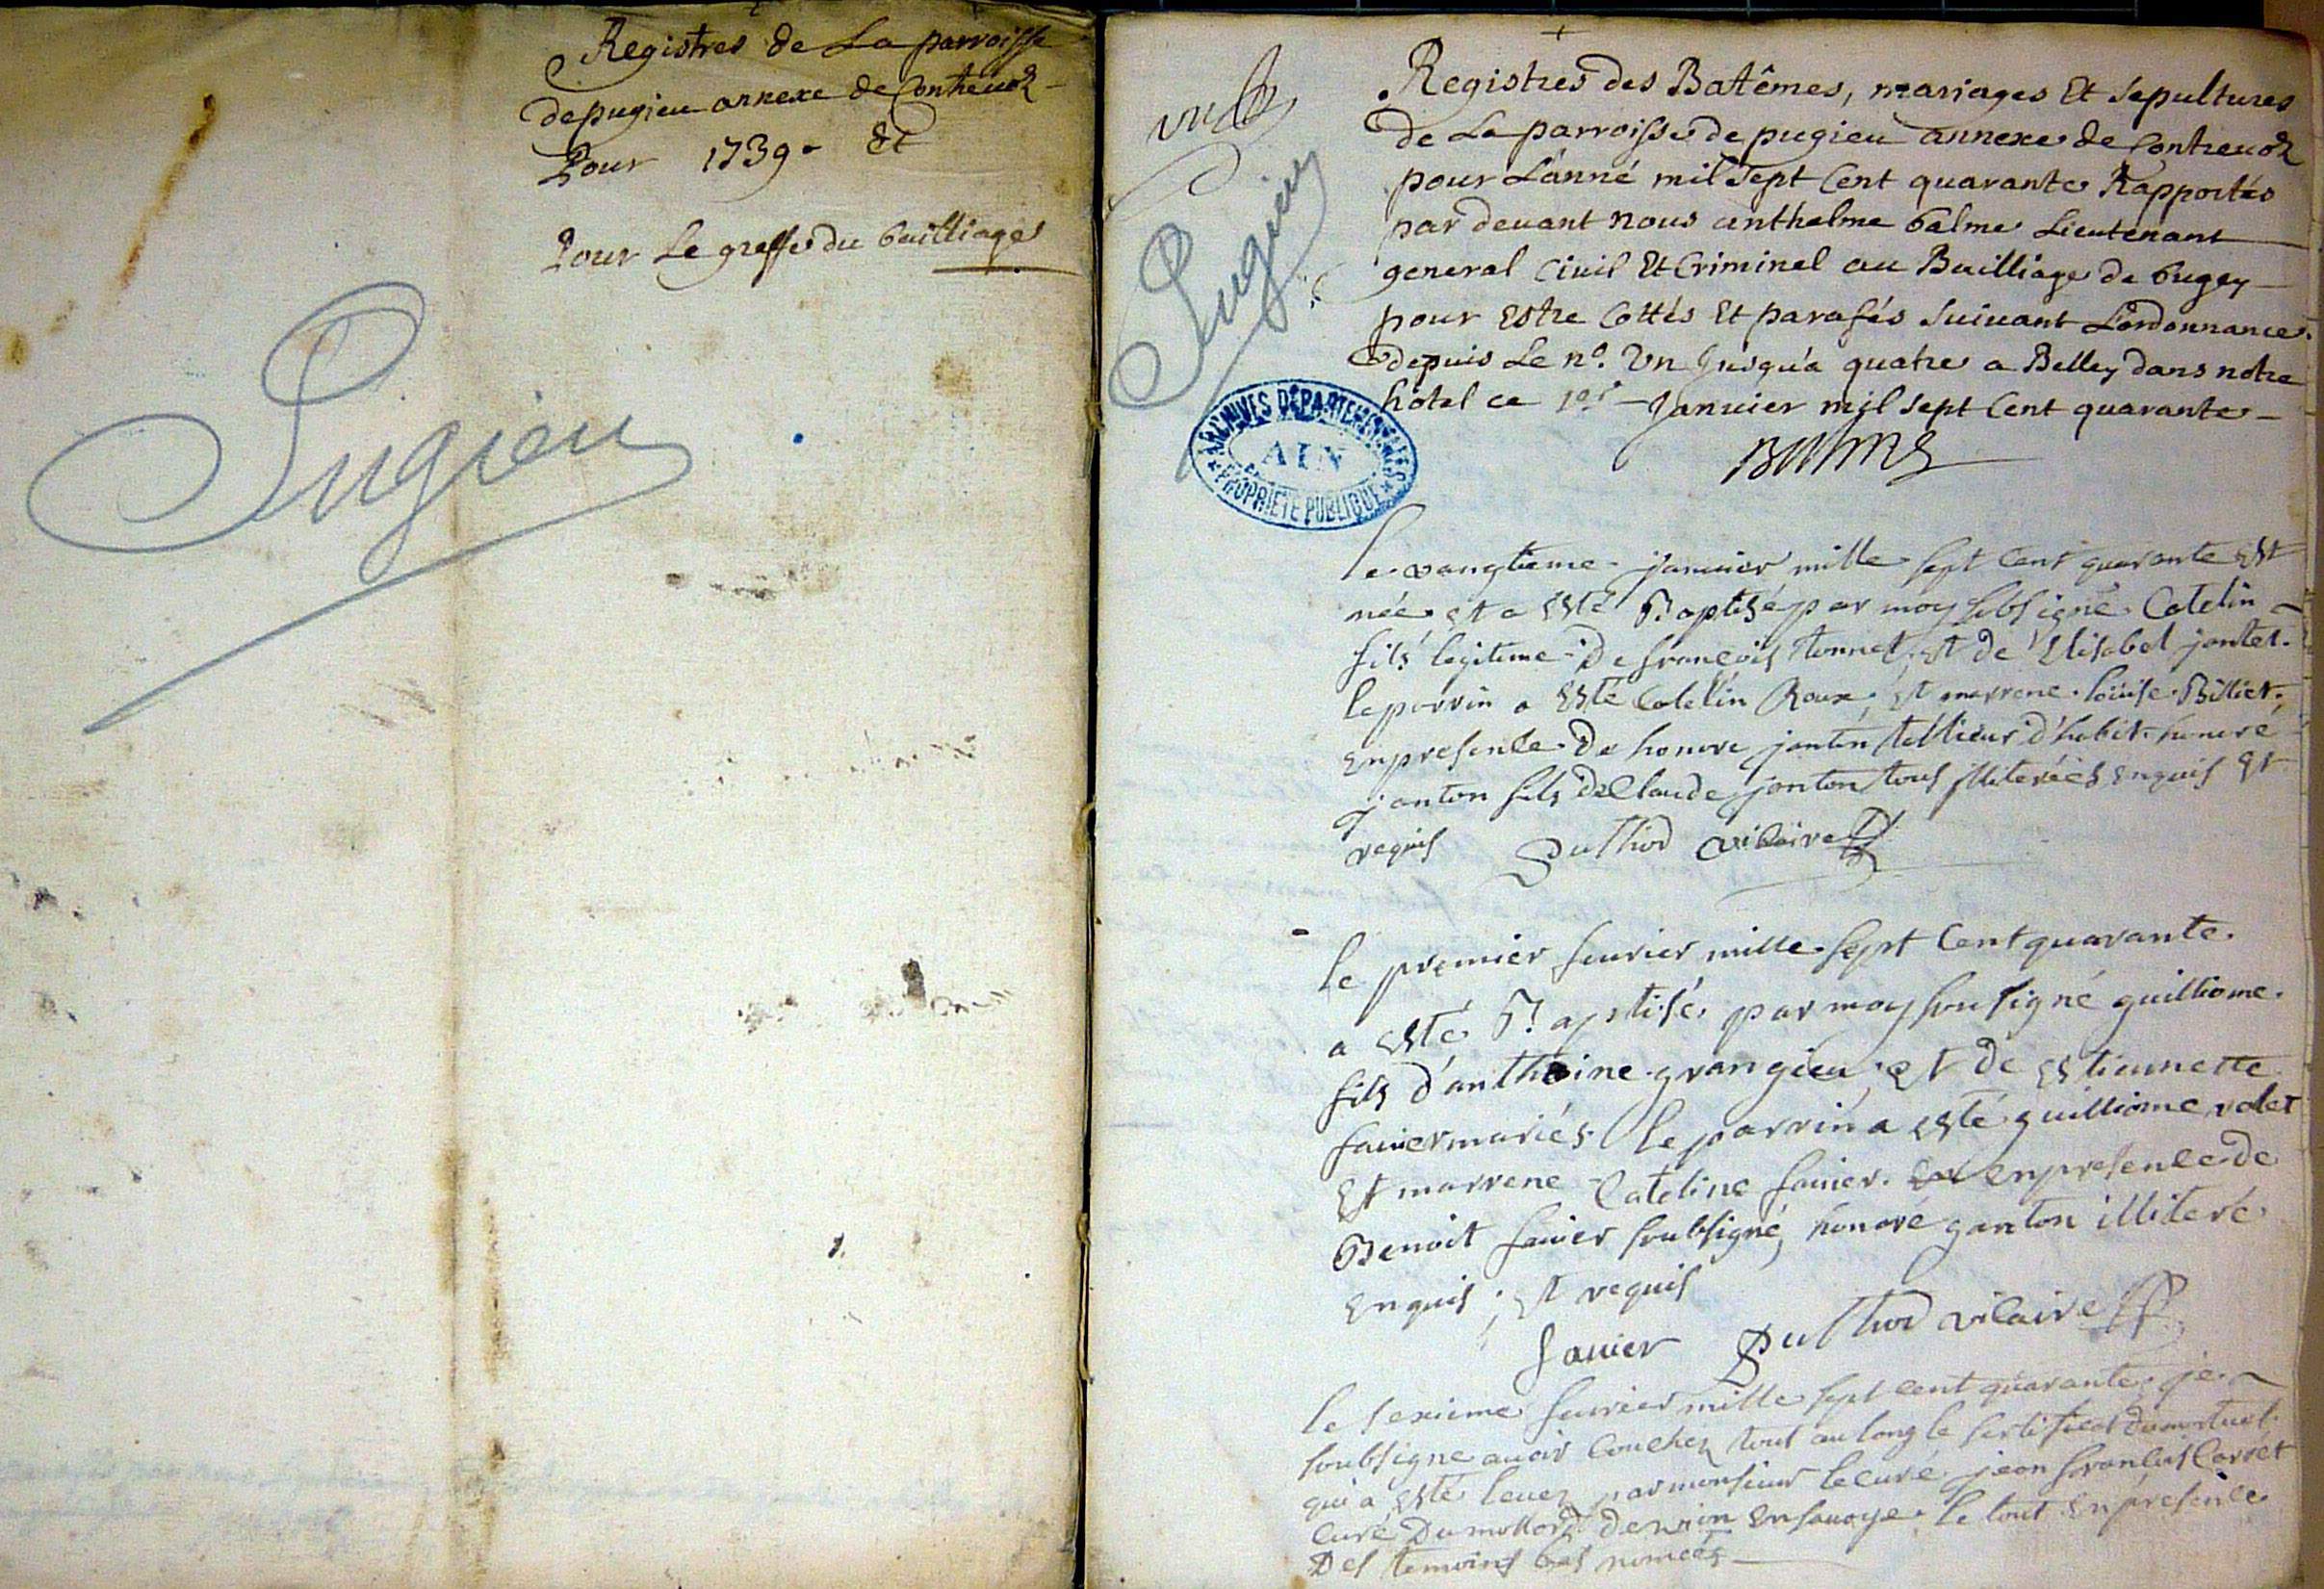 Registres de La parroisse
de pugieu annexe de Contrevoz
Pour 1739. Et
Pour Le greffe du bailliage
Pugieu
Pugieu
Registres des Batêmes, mariages Et sepultures
de La parroisse de pugieu annexe de Contrevoz
pour L'anné mil sept Cent quarante Rapportés
par devant nous anthelme balme Lieutenant
general Civil Et Criminel au Bailliage de bugey
pour Estre Cottés Et parafés suivant L'ordonnance
depuis Le n.º Un Jusqu'a quatre a Belley dans notre
hôtel ce 1er Janvier mil sept Cent quarante
Balme
ARCHIVES DÉPARTEMENTALES
AIN
PROPRIÉTÉ PUBLIQUE
le vangtieme janvier mille sept cent quarante Est
née et a Esté Baptisé par moy sobsigné Catelin
fils legitime de françois tonnet et de Elisabet jontet
le parrin a Esté Catelin Roux, et marrene loüise Billiet
En presence de honore jonton tallieur d'habit honoré
jonton fils de Claude jonton tous illiterées Enquis Et
requis Duthod vicaire
le premier fevrier mille sept Cent quarante
a Esté Baptisé par moy sousigné guilliome
fils d'anthoine grangieu et de Estiennette
favier mariés le parrin a esté guilliome volet
Et marrene Cateline favier en presence de
Benoit favier soubsigné, honoré ganton illiteré
Enquis, et requis
favier Duthod vicaire
le sexieme fevrier mille sept cent quarante je
soubsigne avoir Couchez tout au long le sertificat du mortuel
qui a Esté levez par monsieur le curé jean franCois Carret
curé du mollard de vion En savoye le tout En presence
Des temoins bas nomées